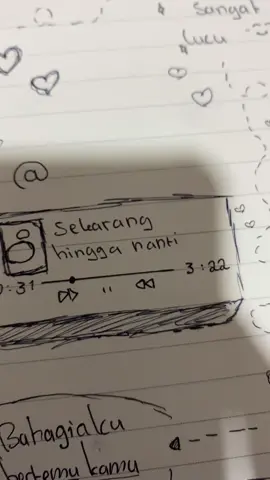 sangat
lucu
@
Sekarang
hingga nanti
0:31
3:22
Bahagiaku
bertemu kamu